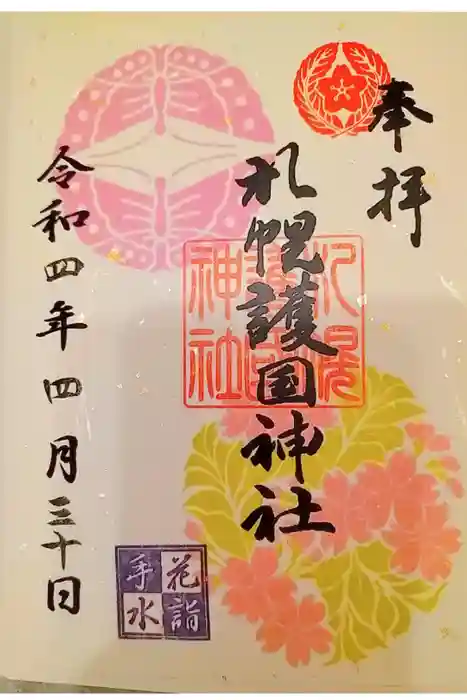 奉拝
札幌護国神社
札幌護国神社
令和四年四月三十日
花詣
手水